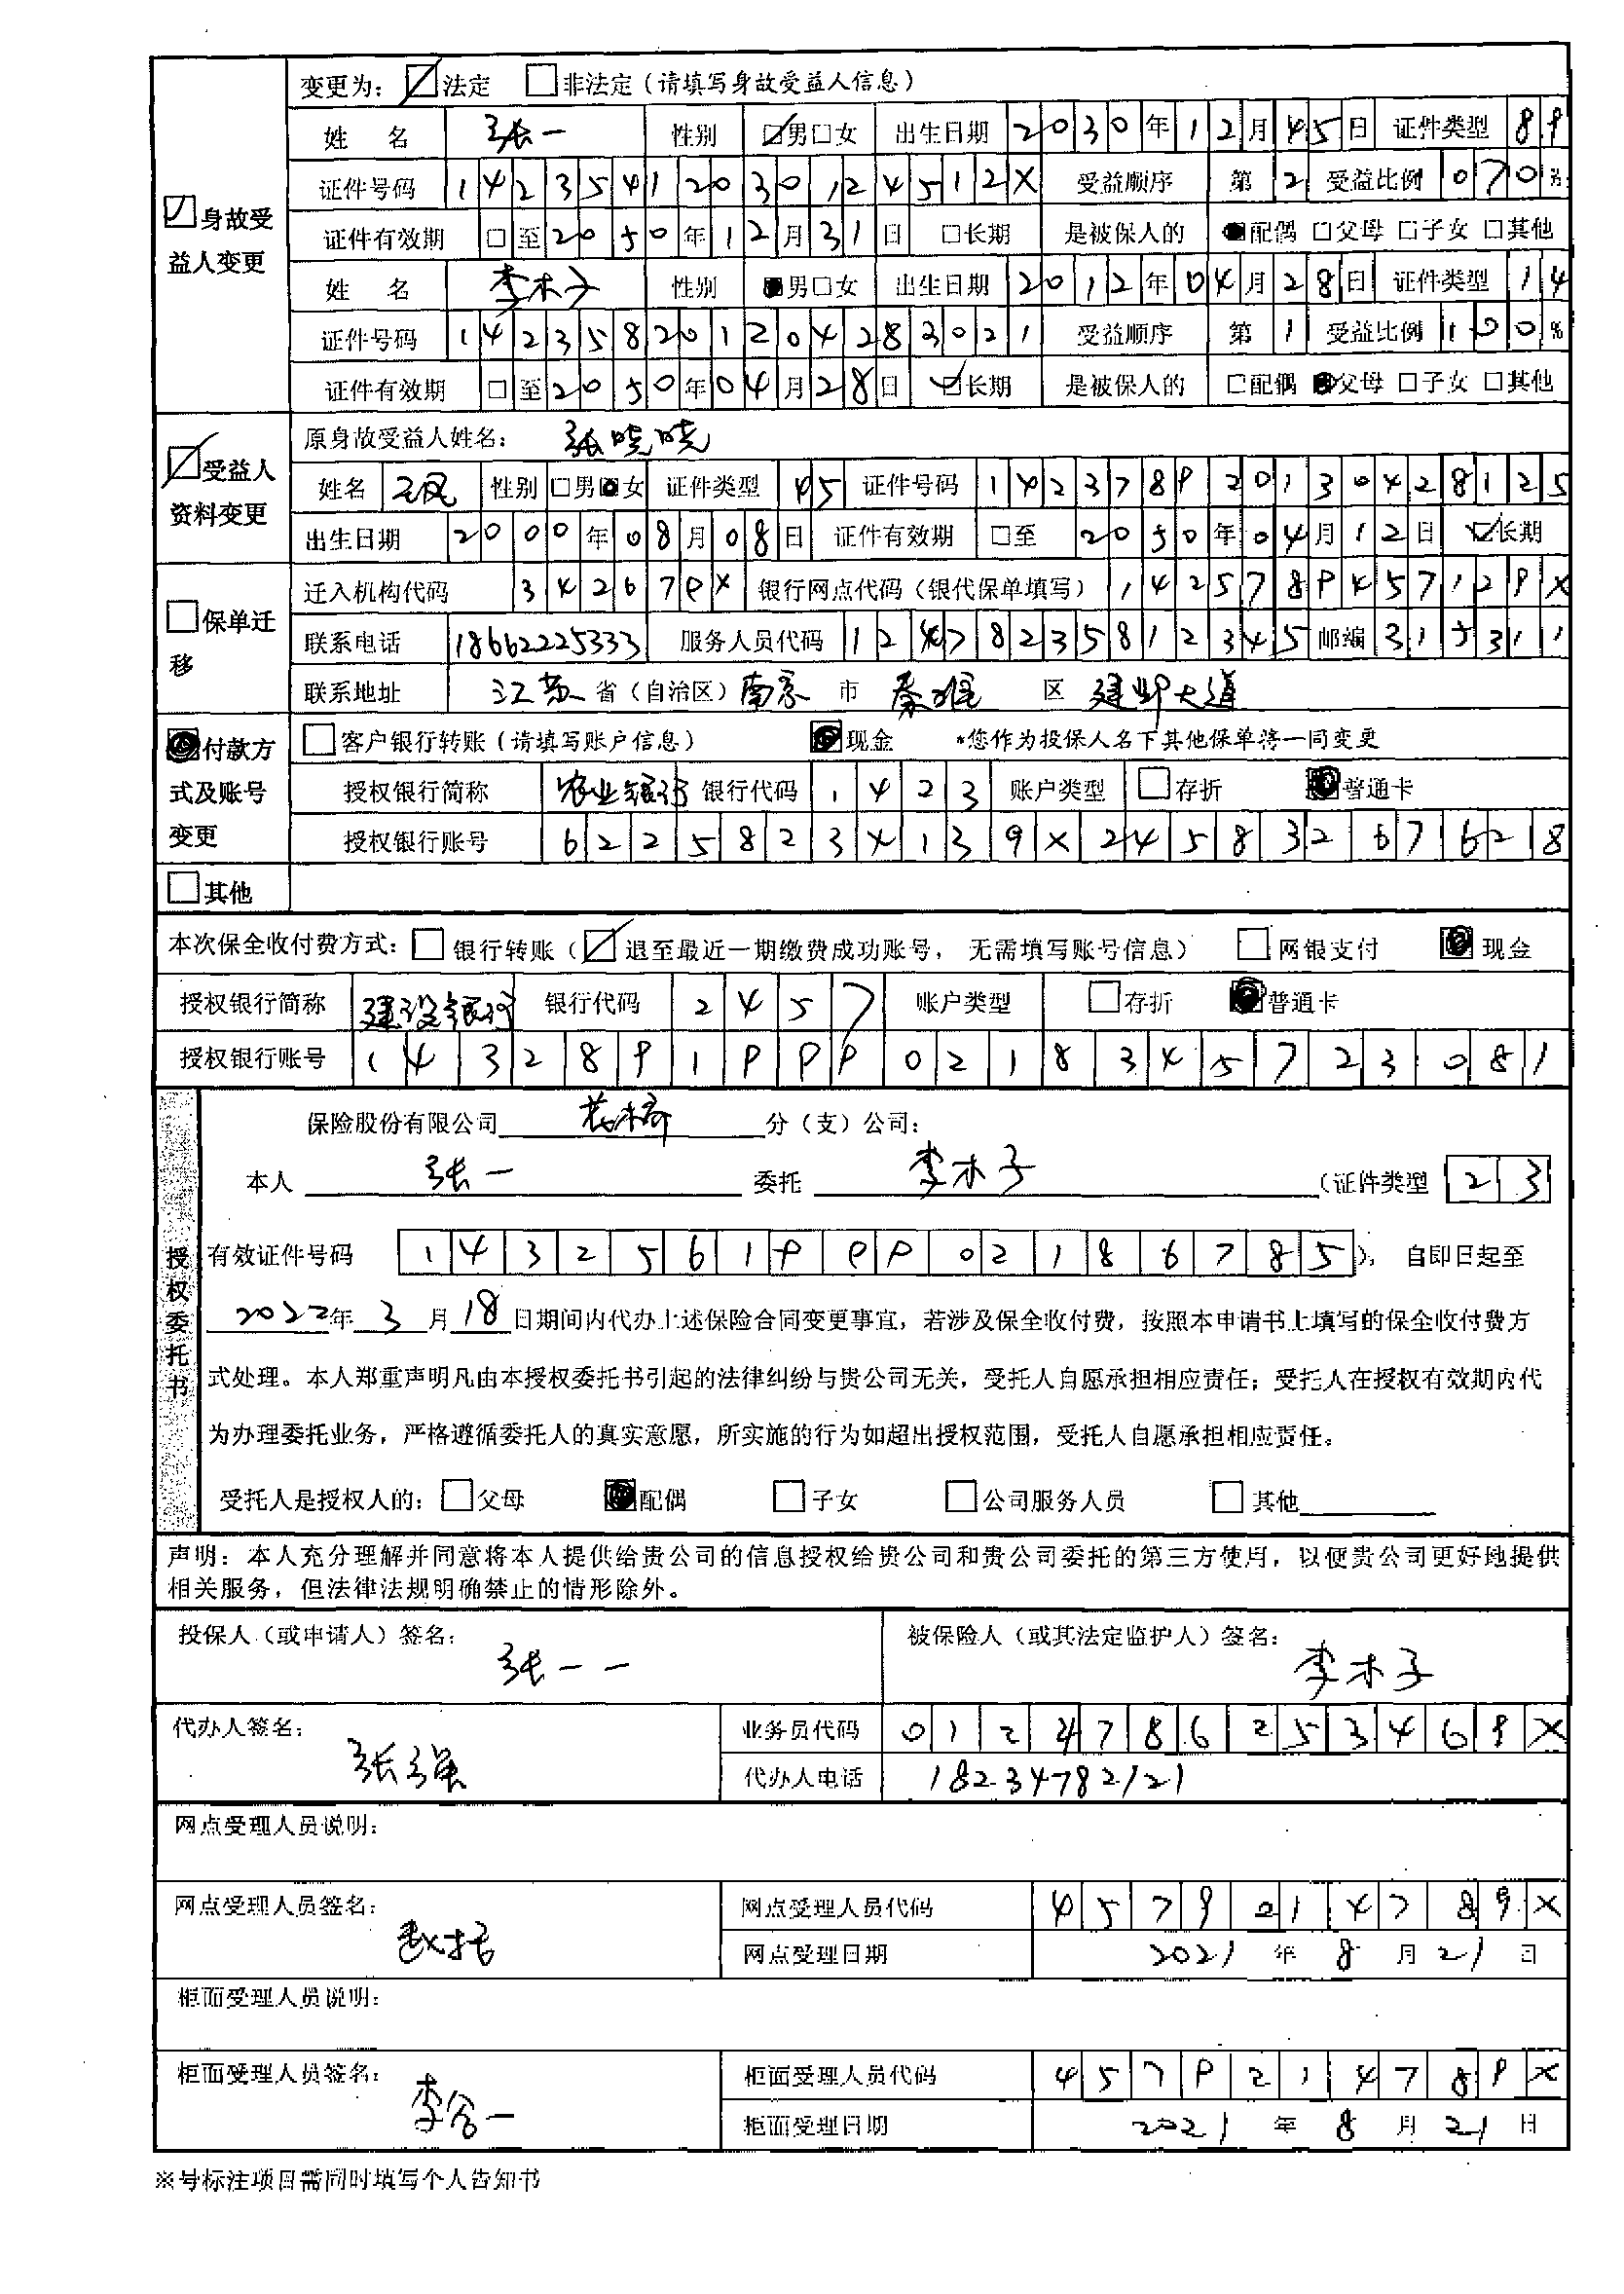 变更为： ☑法定 □非法定（请填写身故受益人信息）
姓 名 张一 性别 ☑男□女 出生日期 2030年12月45日 证件类型 89
☑身故受益人变更
证件号码 14235412030124512X 受益顺序 第2 受益比例 070%
证件有效期 □至2050年12月31日 □长期 是被保人的 ■配偶 □父母 □子女 □其他
姓 名 李木子 性别 ■男□女 出生日期 2012年04月28日 证件类型 14
证件号码 142358201204283021 受益顺序 第1 受益比例 100%
证件有效期 □至2050年04月28日 ☑长期 是被保人的 □配偶 ■父母 □子女 □其他
☑受益人资料变更
原身故受益人姓名： 张晓晓
姓名 王凤 性别 □男■女 证件类型 45 证件号码 142378920130428125
出生日期 2000年08月08日 证件有效期 □至 2050年04月12日 ☑长期
□保单迁移
迁入机构代码 342679X 银行网点代码（银代保单填写） 1425789457129X
联系电话 18662225333 服务人员代码 12478235812345 邮编 315311
联系地址 江苏 省（自治区） 南京 市 秦淮 区 建邺大道
■付款方式及账号变更
□客户银行转账（请填写账户信息） ■现金 *您作为投保人名下其他保单将一同变更
授权银行简称 农业银行 银行代码 1423 账户类型 □存折 ■普通卡
授权银行账号 62258234139X24583267628
□其他
本次保全收付费方式： □银行转账（☑退至最近一期缴费成功账号， 无需填写账号信息） □网银支付 ■现金
授权银行简称 建设银行 银行代码 2457 账户类型 □存折 ■普通卡
授权银行账号 14328919990218345723081
授权委托书
保险股份有限公司 分（支）公司：
本人 张一 委托 李木子 （证件类型 23
有效证件号码 143256199902186785 ）， 自即日起至
2022年 3 月 18 日期间内代办上述保险合同变更事宜，若涉及保全收付费，按照本申请书上填写的保全收付费方
式处理。本人郑重声明凡由本授权委托书引起的法律纠纷与贵公司无关，受托人自愿承担相应责任；受托人在授权有效期内代
为办理委托业务，严格遵循委托人的真实意愿，所实施的行为如超出授权范围，受托人自愿承担相应责任。
受托人是授权人的： □父母 ■配偶 □子女 □公司服务人员 □其他
声明：本人充分理解并同意将本人提供给贵公司的信息授权给贵公司和贵公司委托的第三方使用，以便贵公司更好地提供
相关服务，但法律法规明确禁止的情形除外。
投保人（或申请人）签名： 张一一
被保险人（或其法定监护人）签名： 李木子
代办人签名： 张强
业务员代码 0124786253469X
代办人电话 18234782121
网点受理人员说明：
网点受理人员签名：
网点受理人员代码 4579214789X
网点受理日期 2021 年 8 月 21 日
柜面受理人员说明：
柜面受理人员签名： 李合一
柜面受理人员代码 4579214789X
柜面受理日期 2021 年 8 月 21 日
※号标注项目需同时填写个人告知书